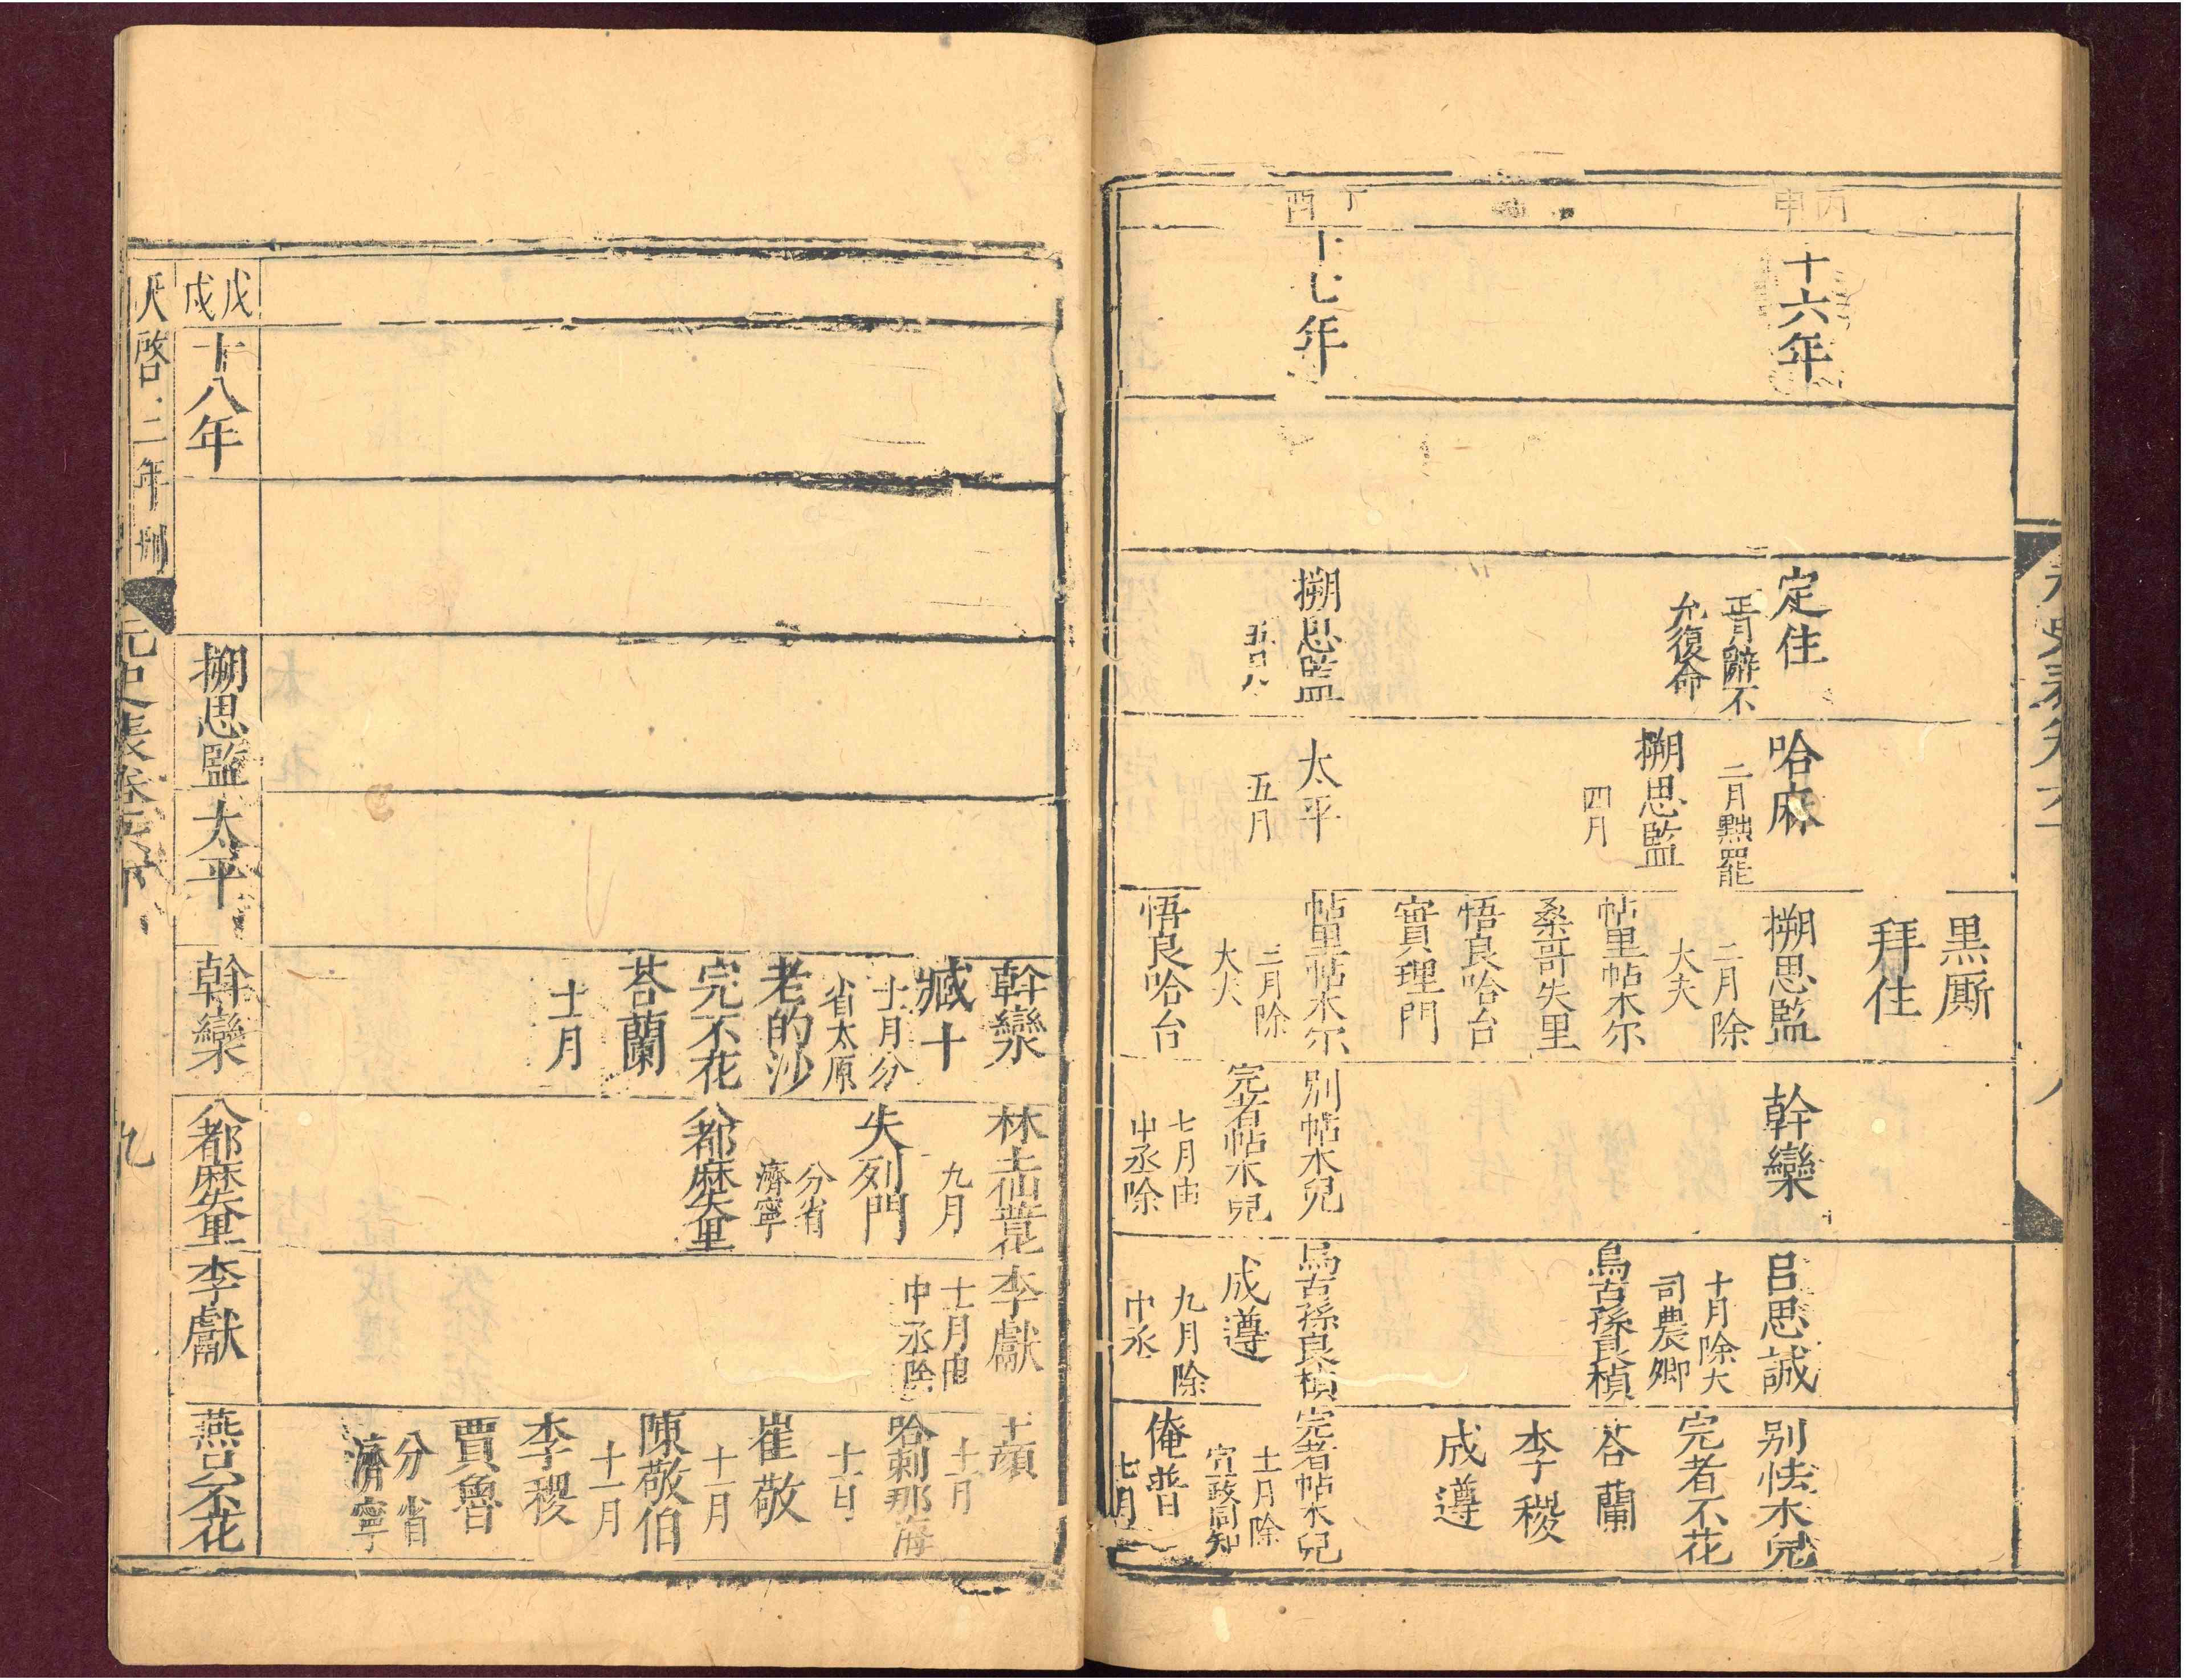 元史表卷六下
八
黒厮
拜住
丙申
十六年
定住
正月辭不
允復命
哈麻
二月黜罷
搠思監
四月
搠思監
二月除
大夫
帖里帖木尔
桑哥失里
悟良哈台
實理門
斡欒
呂思誠
十月除大
司農卿
烏古孫良楨
别怯木兒
完者不花
荅蘭
李稷
成遵
丁酉
十七年
搠思監
五月
太平
五月
帖里帖木尔
三月除
大夫
悟良哈台
别帖木兒
完者帖木兒
七月由
中丞除
烏古孫良楨
成遵
九月除
中丞
完者帖木兒
十一月除
宣政同知
俺普
七月
斡欒
臧卜
十一月分
省太原
老的沙
完不花
荅蘭
十一月
九月
失列門
分省
濟寧
八都麻失里
李獻
十一月由
中丞除
十一月
哈剌那海
崔敬
十一月
陳敬伯
十一月
李稷
賈魯
分省
濟寧
戊戌
十八年
搠思監
太平
斡欒
八都麻失里
李獻
燕只不花
天啓二年刊
元史表卷六下
九